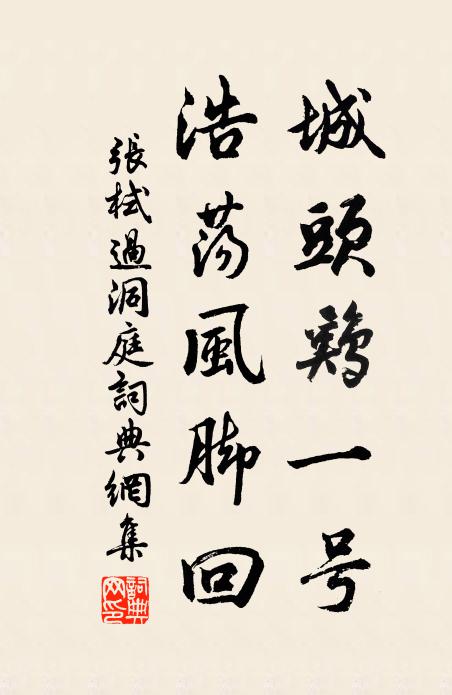 城頭鷄一号
浩荡風脚回
張栻過洞庭詞典網集
詞典网印